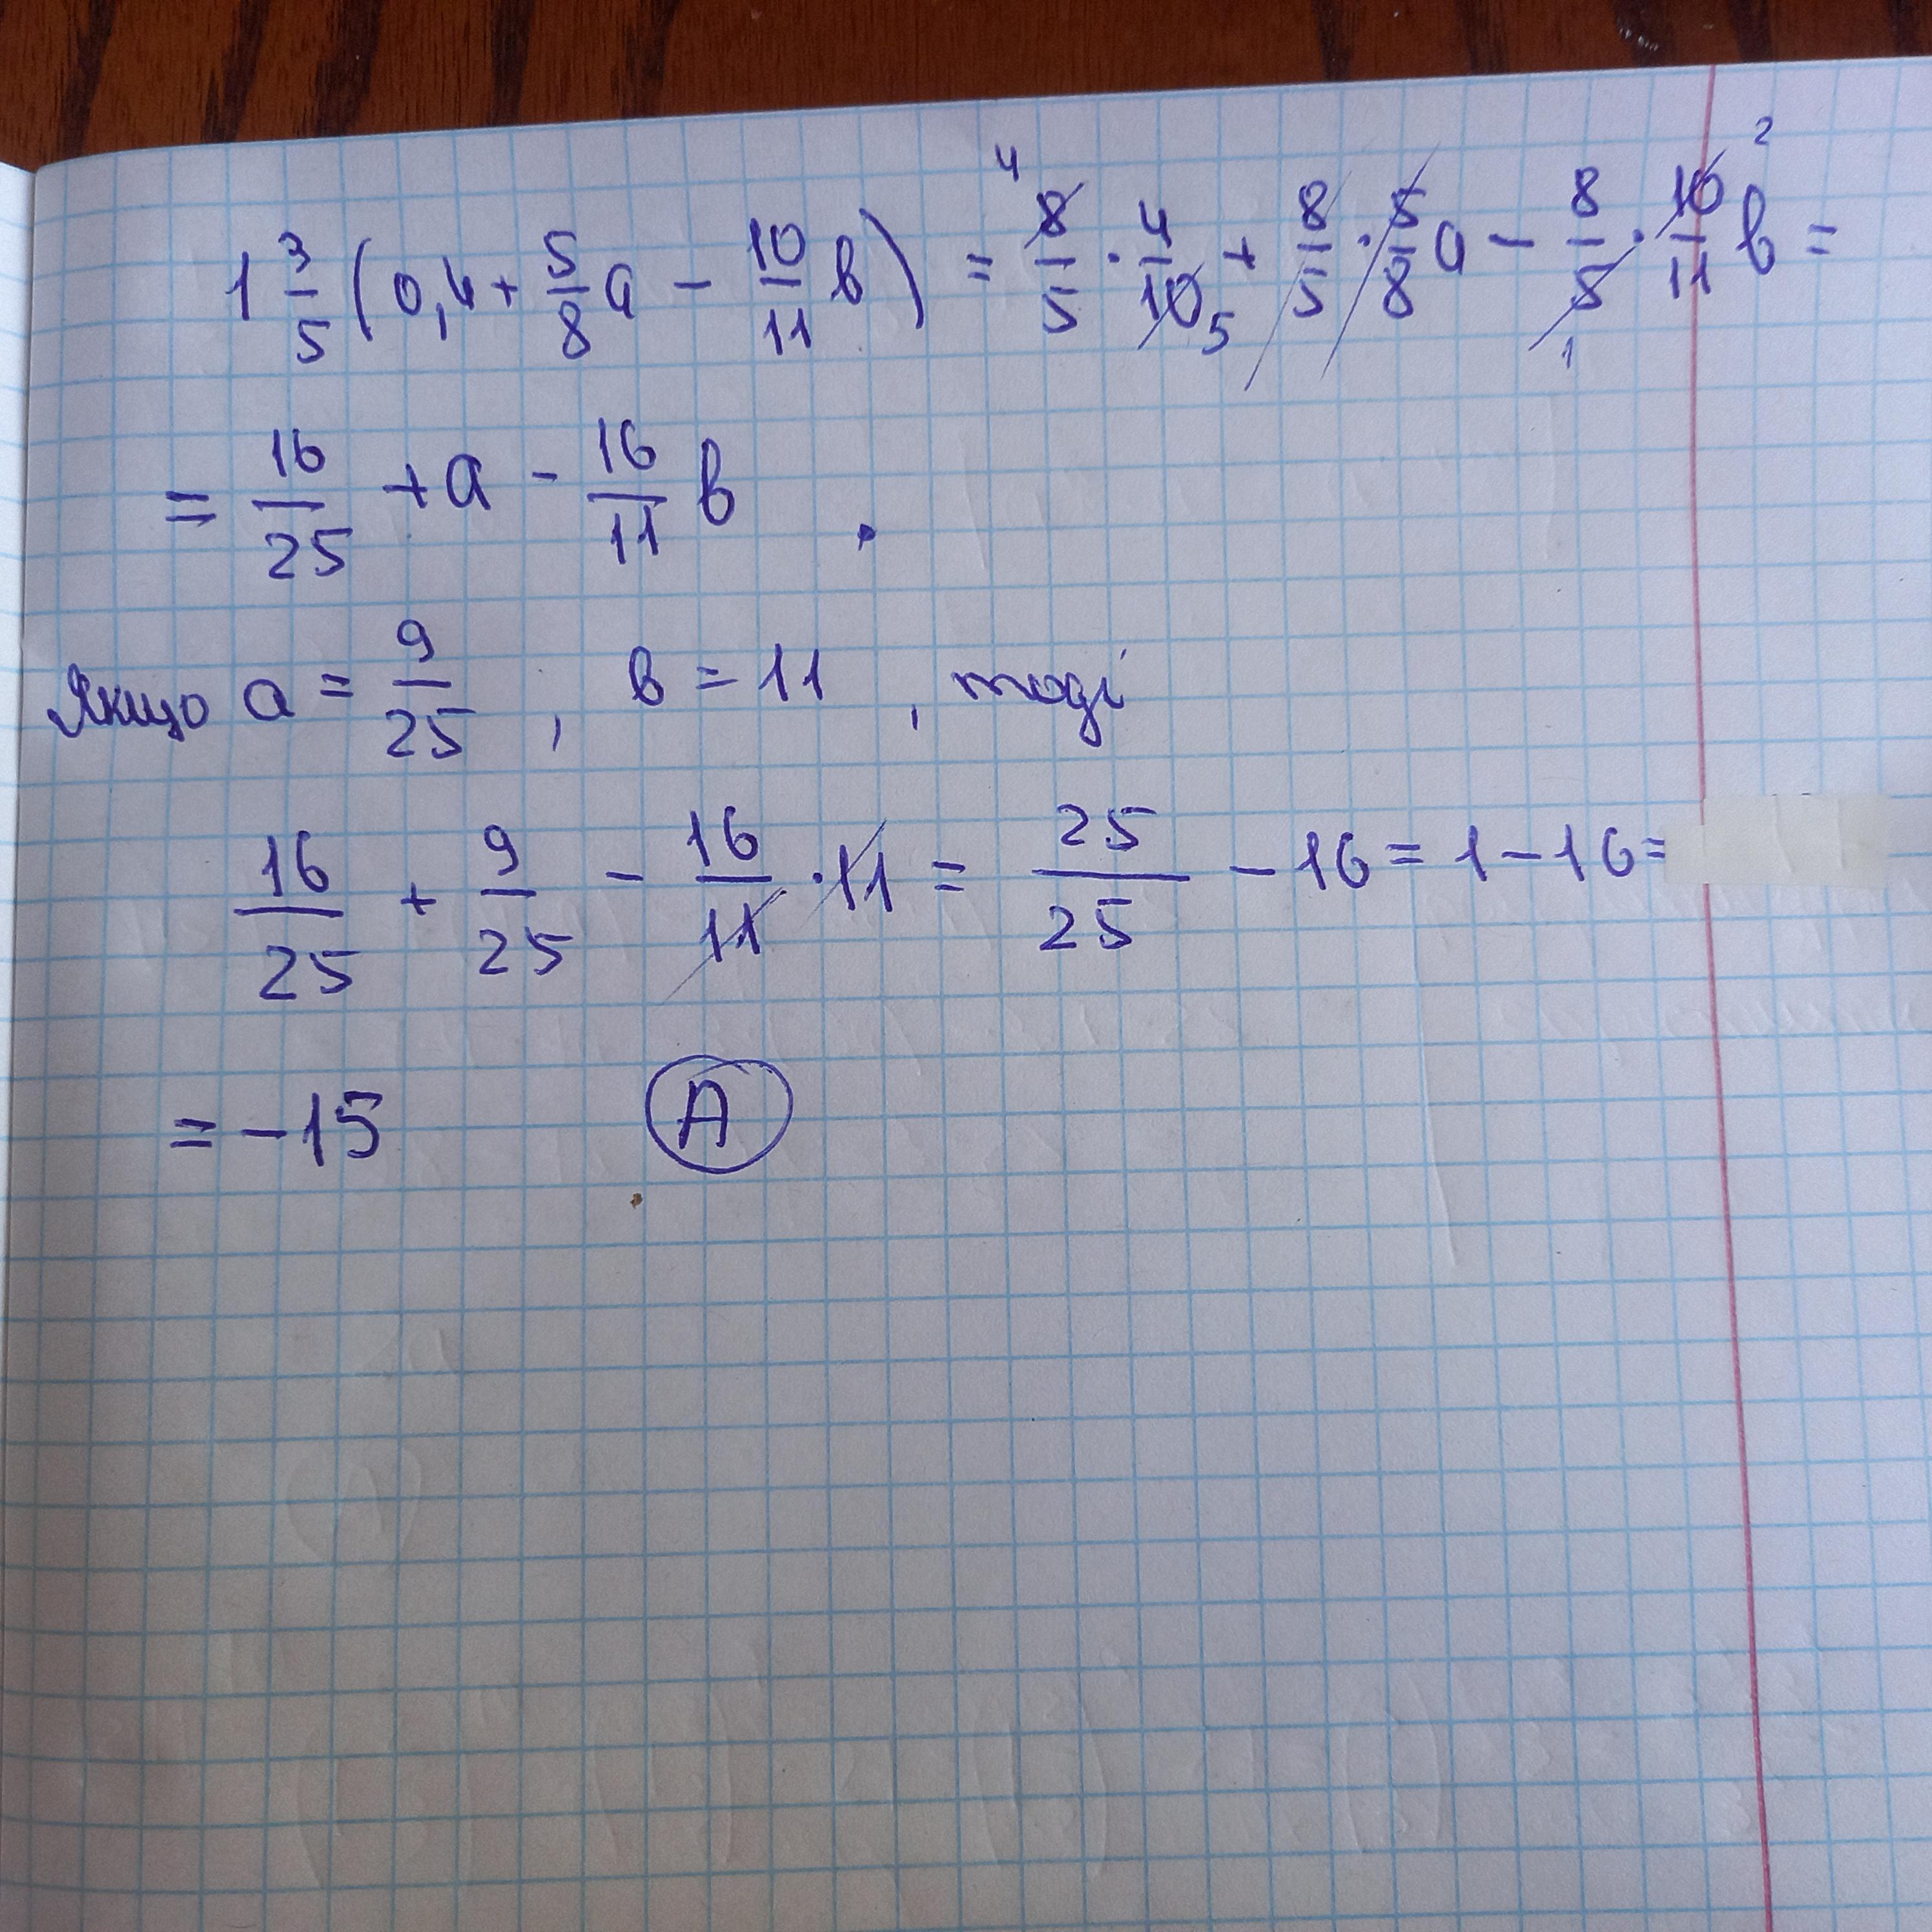 1 3/5 (0,4 + 5/8 a - 10/11 b) = 8/5 · 4/10 + 8/5 · 5/8 a - 8/5 · 10/11 b =
= 16/25 + a - 16/11 b .
Якщо a = 9/25 , b = 11 , тоді
16/25 + 9/25 - 16/11 · 11 = 25/25 - 16 = 1 - 16 =
= -15 A